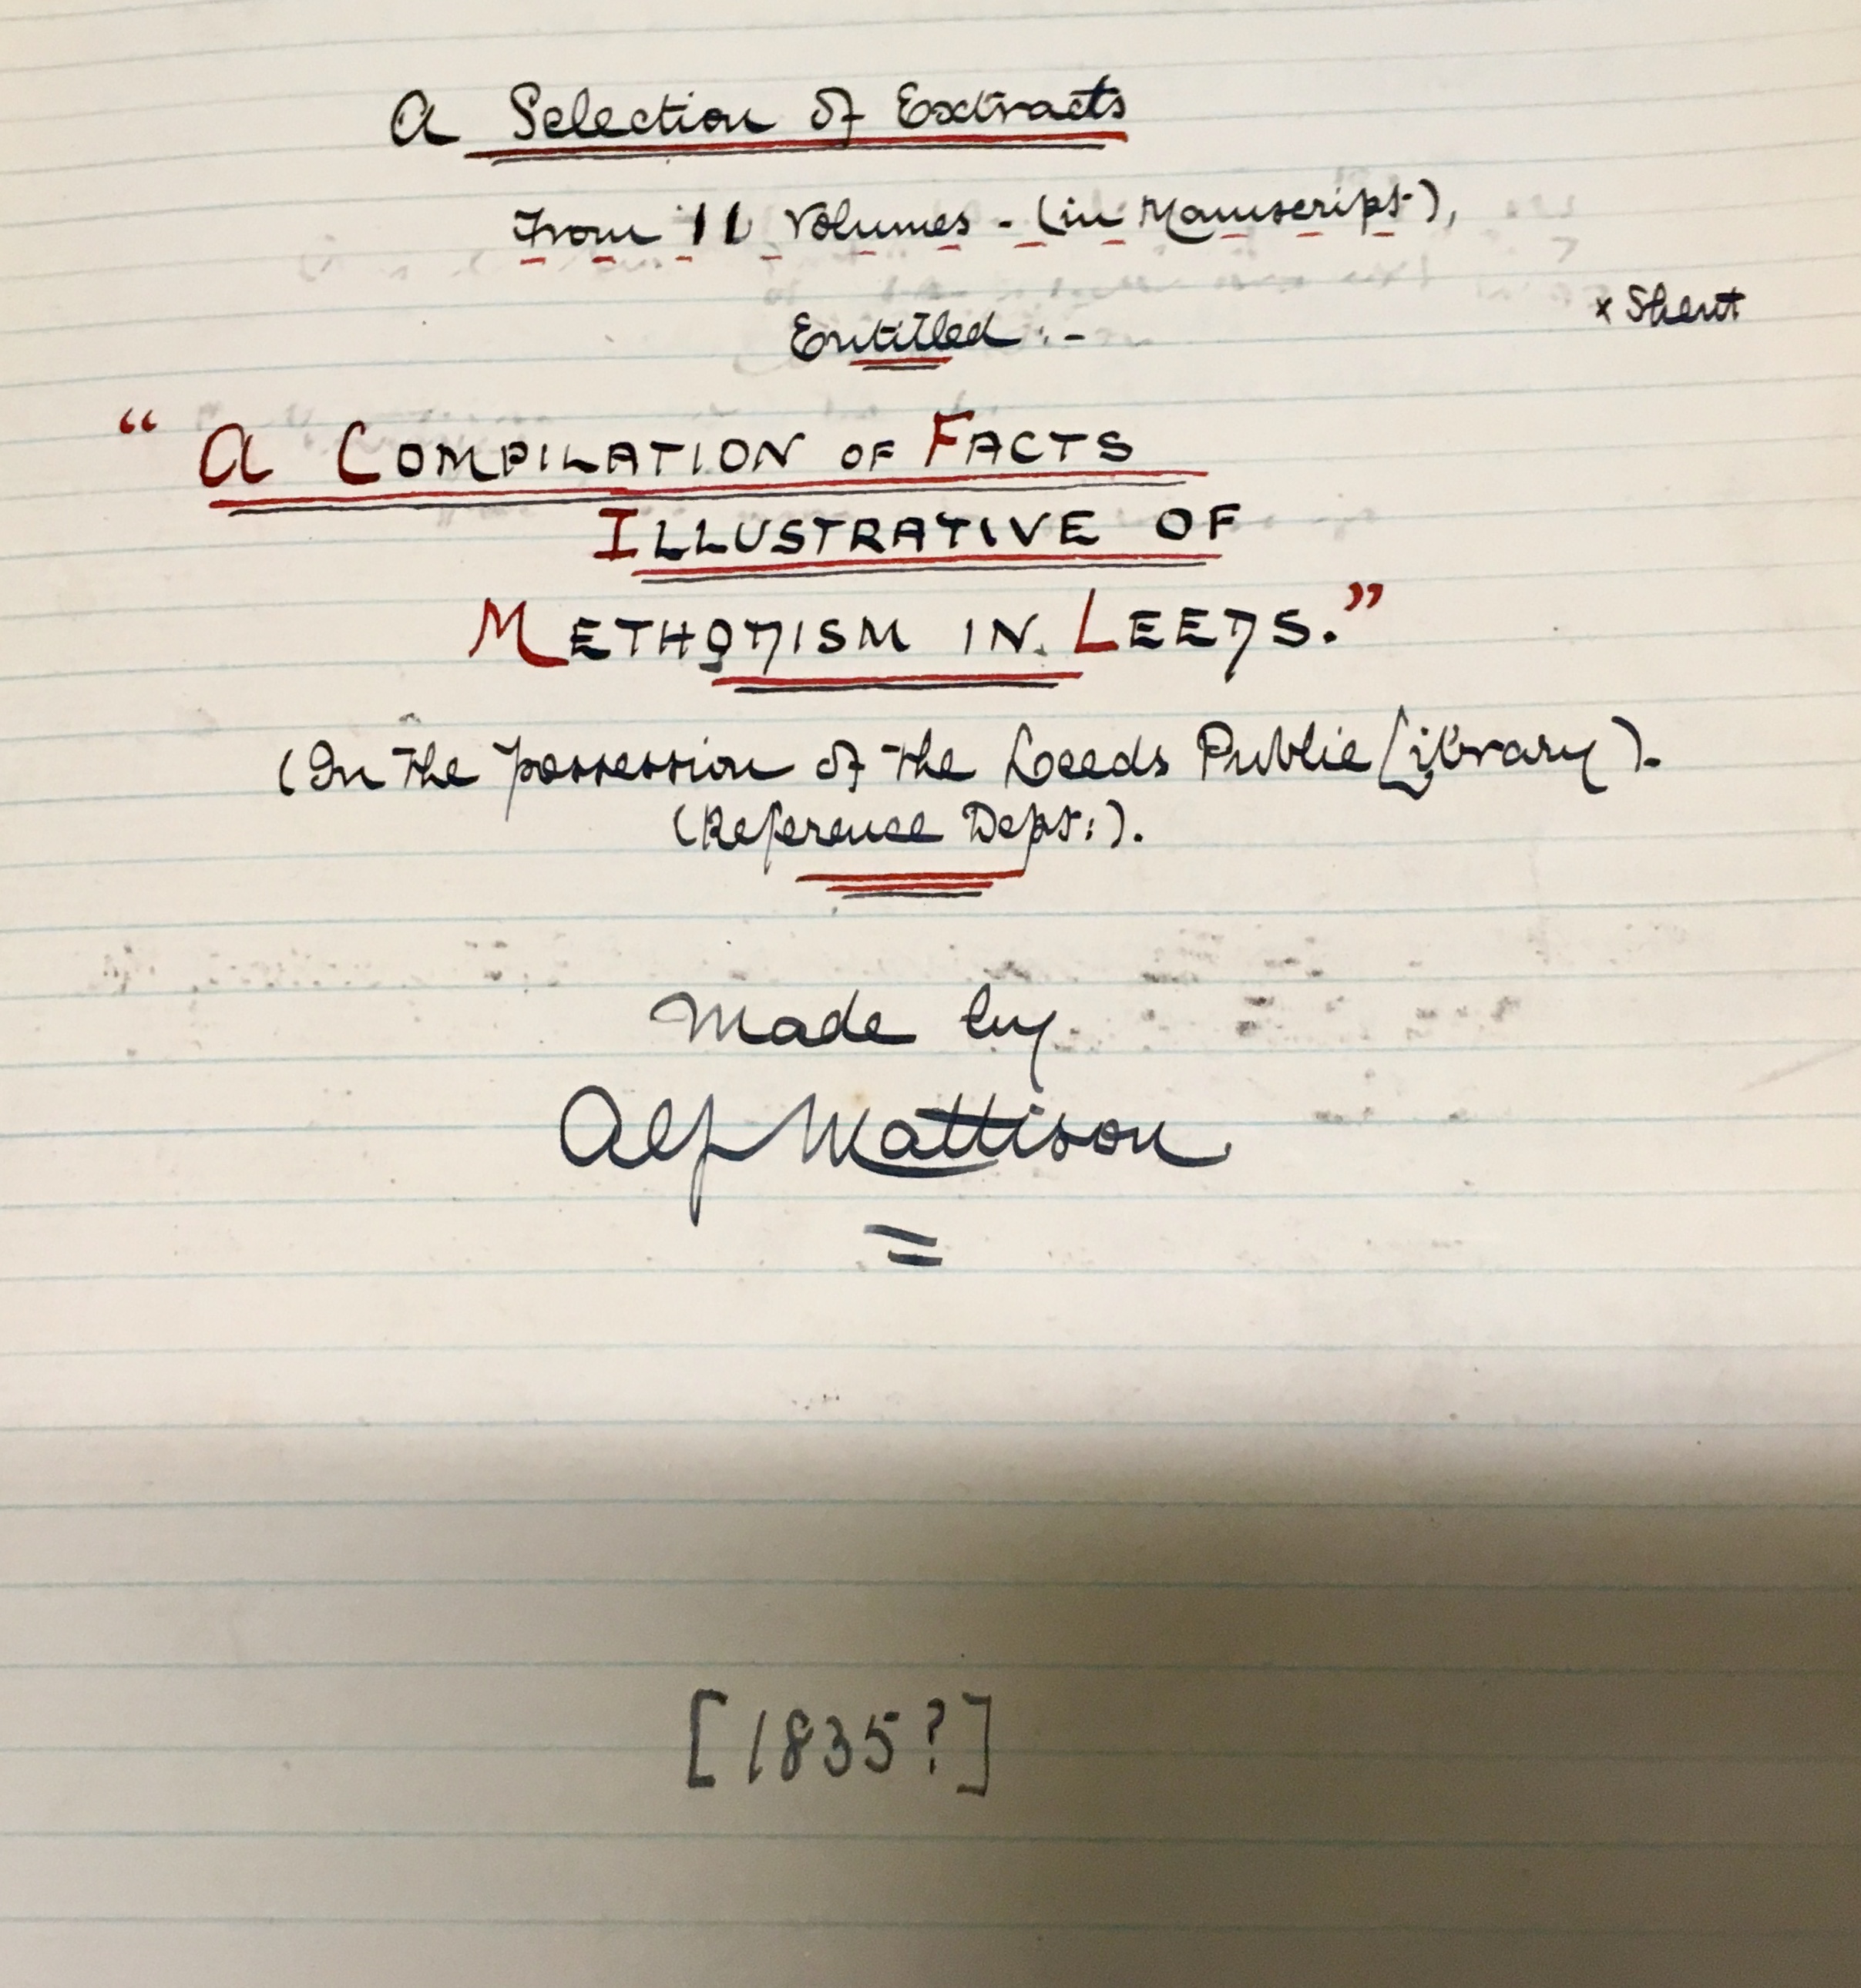 A Selection of Extracts
From 11 Volumes - (in Manuscript),
Entitled :-
x Stent
“ A COMPILATION OF FACTS
ILLUSTRATIVE OF
METHODISM IN LEEDS.”
(In the possession of the Leeds Public Library).
(Reference Dept:).
Made by
Alf Mattison
[1835?]